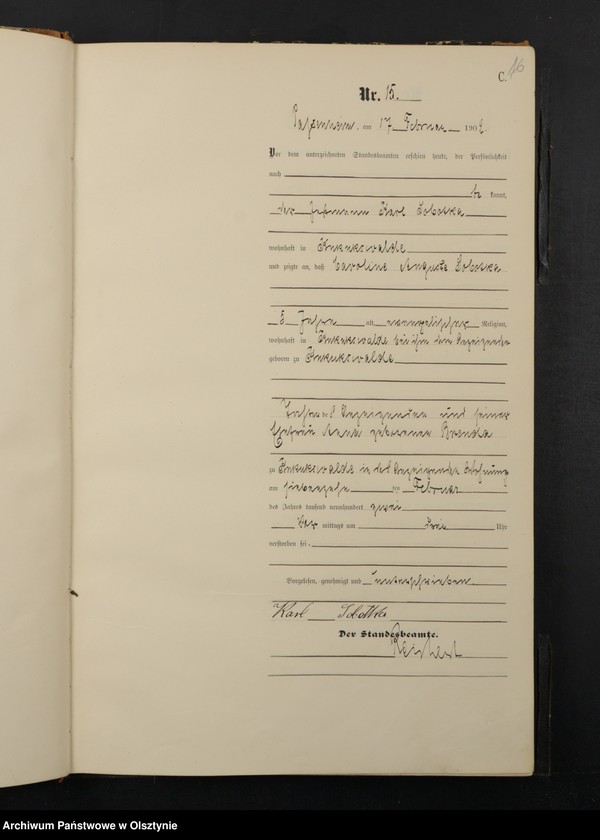 C. 16
Nr. 15.
Passenheim, am 17 Februar 1902.
Vor dem unterzeichneten Standesbeamten erschien heute, der Persönlichkeit
nach
be kannt,
der Karl Sobotka
wohnhaft in
und zeigte an, daß Caroline Auguste Sobotka
8 Jahre alt, evangelischer Religion,
wohnhaft in bei ihm dem Anzeigenden
geboren zu
Tochter des Anzeigenden und seiner
Ehefrau Anna geborenen
zu in des Anzeigenden Wohnung
am siebenzehn ten Februar
des Jahres tausend neunhundert zwei
Vor mittags um drei Uhr
verstorben sei.
Vorgelesen, genehmigt und unterschrieben
Karl Sobottka
Der Standesbeamte.
Archiwum Państwowe w Olsztynie